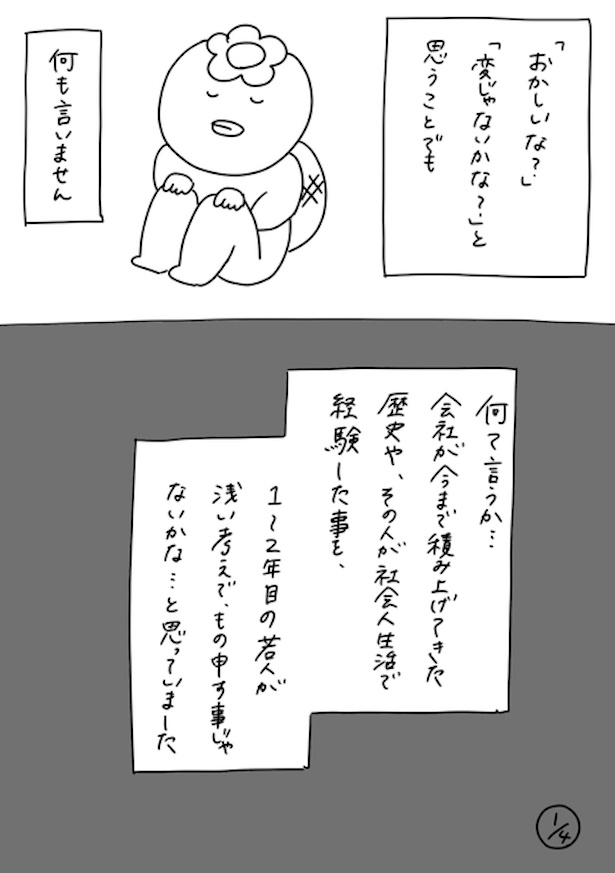 「おかしいな？」
「変じゃないかな？」と
思うことでも
何も言いません
何て言うか…
会社が今まで積み上げてきた
歴史や、その人が社会人生活で
経験した事を、
1〜2年目の若人が
浅い考えで、もの申す事じゃ
ないかな…と思っていました
1/4